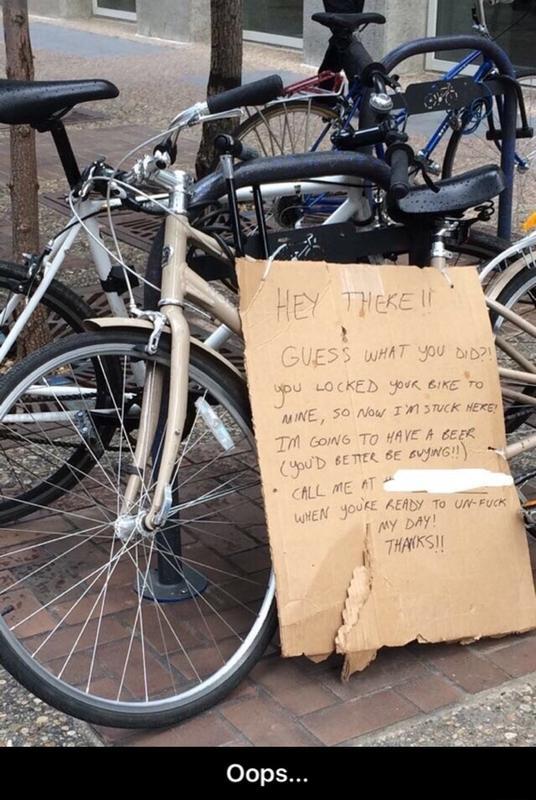 HEY THERE!!
GUESS WHAT YOU DID?!
YOU LOCKED YOUR BIKE TO
MINE, SO NOW I'M STUCK HERE!
I'M GOING TO HAVE A BEER
(YOU'D BETTER BE BUYING!!)
CALL ME AT
WHEN YOU'RE READY TO UN-FUCK
MY DAY!
THANKS!!
Oops...